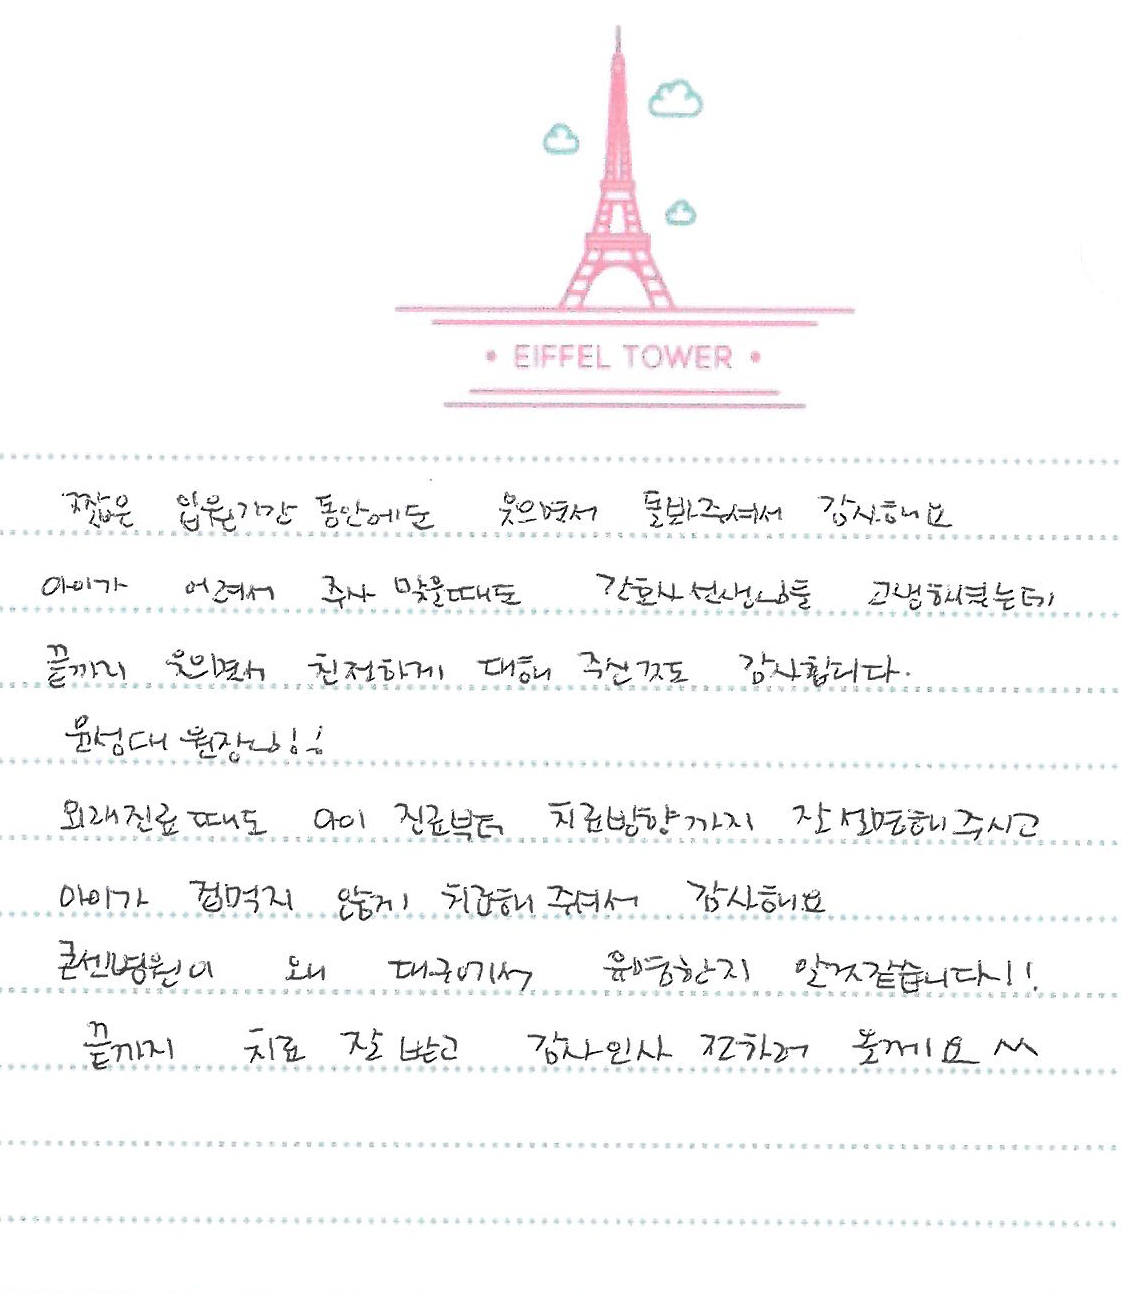 • EIFFEL TOWER •
짧은 입원기간 동안에도 웃으면서 돌봐주셔서 감사해요
아이가 어려서 주사 맞을때도 간호사선생님들 고생하셨는데
끝까지 웃으면서 친절하게 대해 주신것도 감사합니다.
윤성대 원장님!!
외래진료때도 아이 진료부터 치료방향까지 잘설명해주시고
아이가 겁먹지 않게 치료해주셔서 감사해요
콘센병원이 왜 대구에서 유명한지 알것같습니다!!
끝까지 치료 잘 받고 감사인사 전하러 올께요 ^^